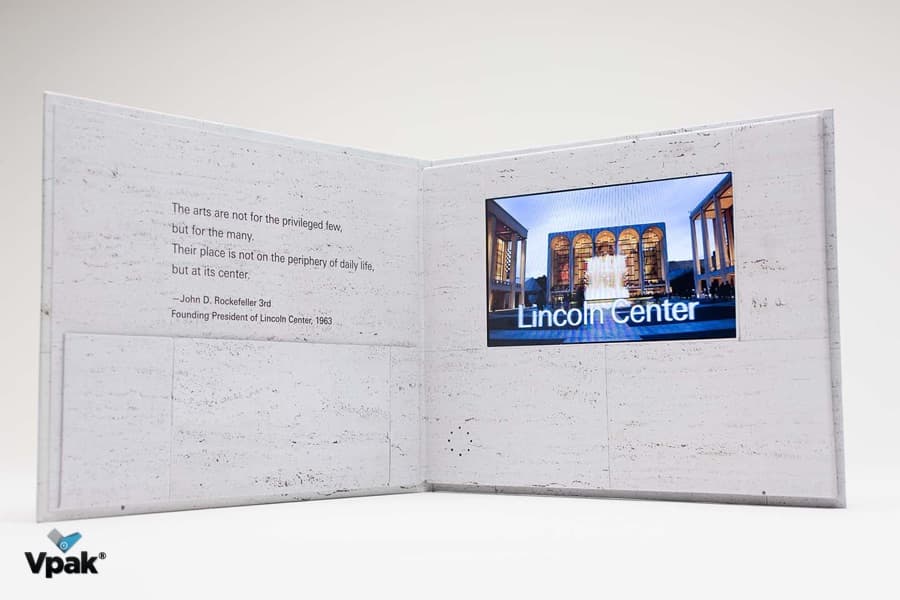 The arts are not for the privileged few,
but for the many.
Their place is not on the periphery of daily life,
but at its center.
—John D. Rockefeller 3rd
Founding President of Lincoln Center, 1963
Lincoln Center
Vpak®